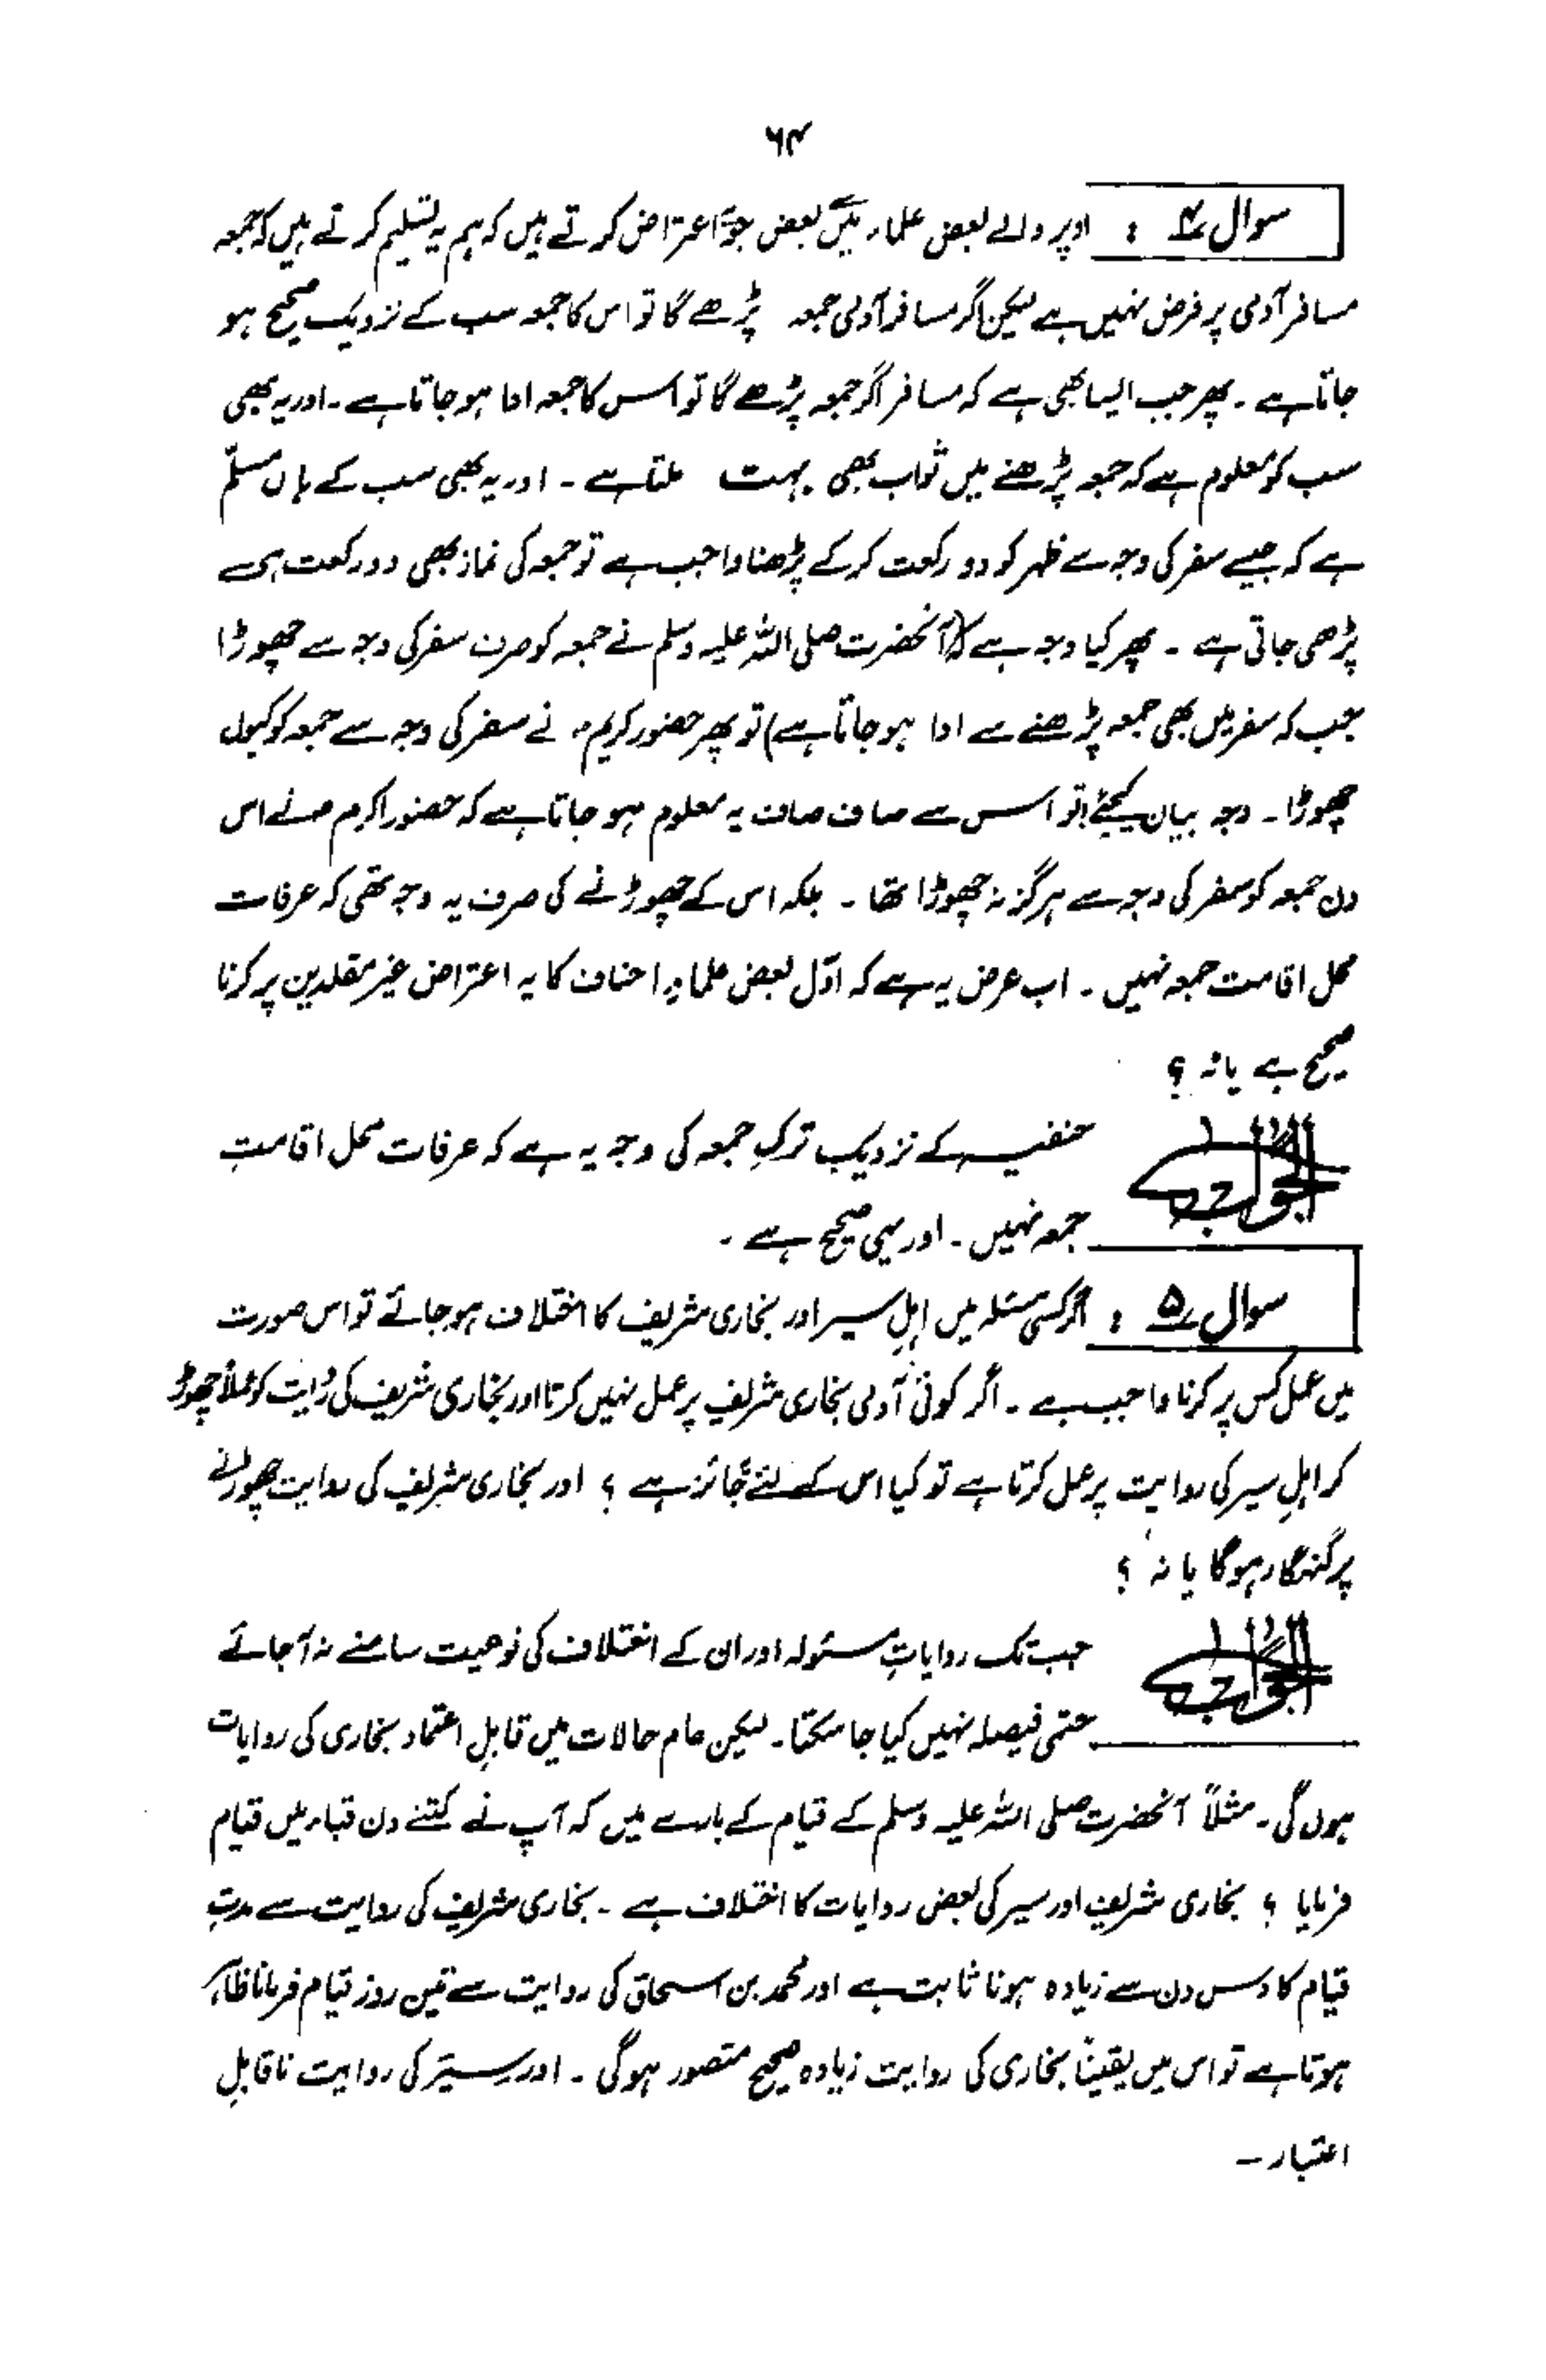 ۶۴
سوال ۴ : اوپر والے بعض علماء میں سے بعض جو اعتراض کرتے ہیں کہ ہم یہ تسلیم کرتے ہیں کہ جمعہ
مسافر آدمی پر فرض نہیں ہے لیکن اگر مسافر آدمی جمعہ پڑھے گا تو اس کا جمعہ سب کے نزدیک صحیح ہو
جاتا ہے ۔ پھر جب ایسا بھی ہے کہ مسافر اگر جمعہ پڑھے گا تو اس کا جمعہ ادا ہو جاتا ہے ۔ اور یہ بھی
سب کو معلوم ہے کہ جمعہ پڑھنے میں ثواب بھی بہت ملتا ہے ۔ اور یہ بھی سب کے ہاں مسلّم
ہے کہ جیسے سفر کی وجہ سے ظہر کو دو رکعت کرکے پڑھنا واجب ہے تو جمعہ کی نماز بھی دو رکعت ہی
پڑھی جاتی ہے ۔ پھر کیا وجہ ہے کہ (آنحضرت صلی اللہ علیہ وسلم نے جمعہ کو صرف سفر کی وجہ سے چھوڑا
جب کہ سفر میں بھی جمعہ پڑھنے سے ادا ہو جاتا ہے) تو پھر حضور کریمؐ نے سفر کی وجہ سے جمعہ کو کیوں
چھوڑا ۔ وجہ بیان کیجئے؟ تو اس سے صاف صاف یہ معلوم ہو جاتا ہے کہ حضور اکرمؐ نے اس
دن جمعہ کو سفر کی وجہ سے ہرگز نہ چھوڑا تھا ۔ بلکہ اس کے چھوڑنے کی صرف یہ وجہ تھی کہ عرفات
محل اقامت جمعہ نہیں ۔ اب عرض یہ ہے کہ اوّل بعض علماءِ احناف کا یہ اعتراض غیر مقلدین پر کرنا
صحیح ہے یا نہ ؟
الجواب حنفیہ کے نزدیک ترکِ جمعہ کی وجہ یہ ہے کہ عرفات محل اقامتِ
جمعہ نہیں ۔ اور یہی صحیح ہے ۔
سوال ۵ : اگر کسی مسئلہ میں اہلِ سیر اور بخاری شریف کا اختلاف ہو جائے تو اس صورت
میں عمل کس پر کرنا واجب ہے ۔ اگر کوئی آدمی بخاری شریف پر عمل نہیں کرتا اور بخاری شریف کی روایت کو عملاً چھوڑ
کر اہلِ سیر کی روایت پر عمل کرتا ہے تو کیا اس کے لئے جائز ہے ؟ اور بخاری شریف کی روایت چھوڑنے
پر گنہگار ہوگا یا نہ ؟
الجواب جب تک روایاتِ مسئولہ اور ان کے اختلاف کی نوعیت سامنے نہ آجائے
حتمی فیصلہ نہیں کیا جا سکتا ۔ لیکن عام حالات میں قابلِ اعتماد بخاری کی روایات
ہوں گی ۔ مثلاً آنحضرت صلی اللہ علیہ وسلم کے قیام کے بارے میں کہ آپ نے کتنے دن قباء میں قیام
فرمایا ؟ بخاری شریف اور سیر کی بعض روایات کا اختلاف ہے ۔ بخاری شریف کی روایت سے مدتِ
قیام کا دس دن سے زیادہ ہونا ثابت ہے اور محمد بن اسحاق کی روایت سے تین روز قیام فرمانا ظاہر
ہوتا ہے تو اس میں یقیناً بخاری کی روایت زیادہ صحیح متصور ہوگی ۔ اور سیَر کی روایت ناقابلِ
اعتبار ۔